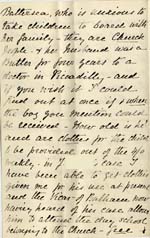 Battersea, who is anxious to
take children to board with
her family - they are Church
people - & her husband was a
Butler for four years to a
doctor in Piccadilly - and
if you wish it I could
find out at once if & when
the boy you mention could
be received - How old is he?
and are clothes for the child
to be provided out of the 5/-
weekly, in I case I
have been able to get clothes
given me for his use at present
and the Vicar of Battersea, now
having heard of his case, allows
him to attend the day school
belonging to the Church - free